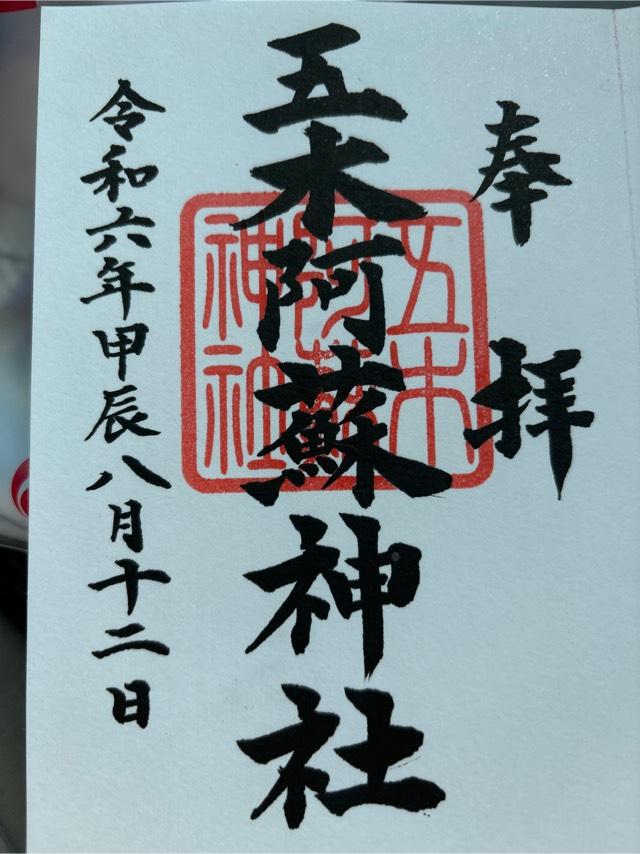 奉拝
五木阿蘇神社
五木阿蘇神社
令和六年甲辰八月十二日